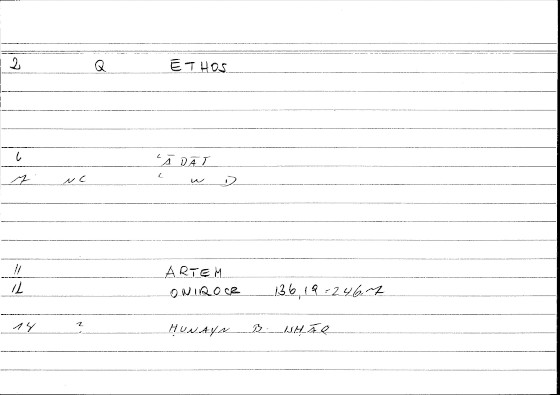 2 Q ETHOS
6 ʿĀDĀT
7 NC ʿ W D
11 ARTEM
12 ONIROCR 136,19 = 246.7
14 ? ḤUNAYN B. ISḤĀQ